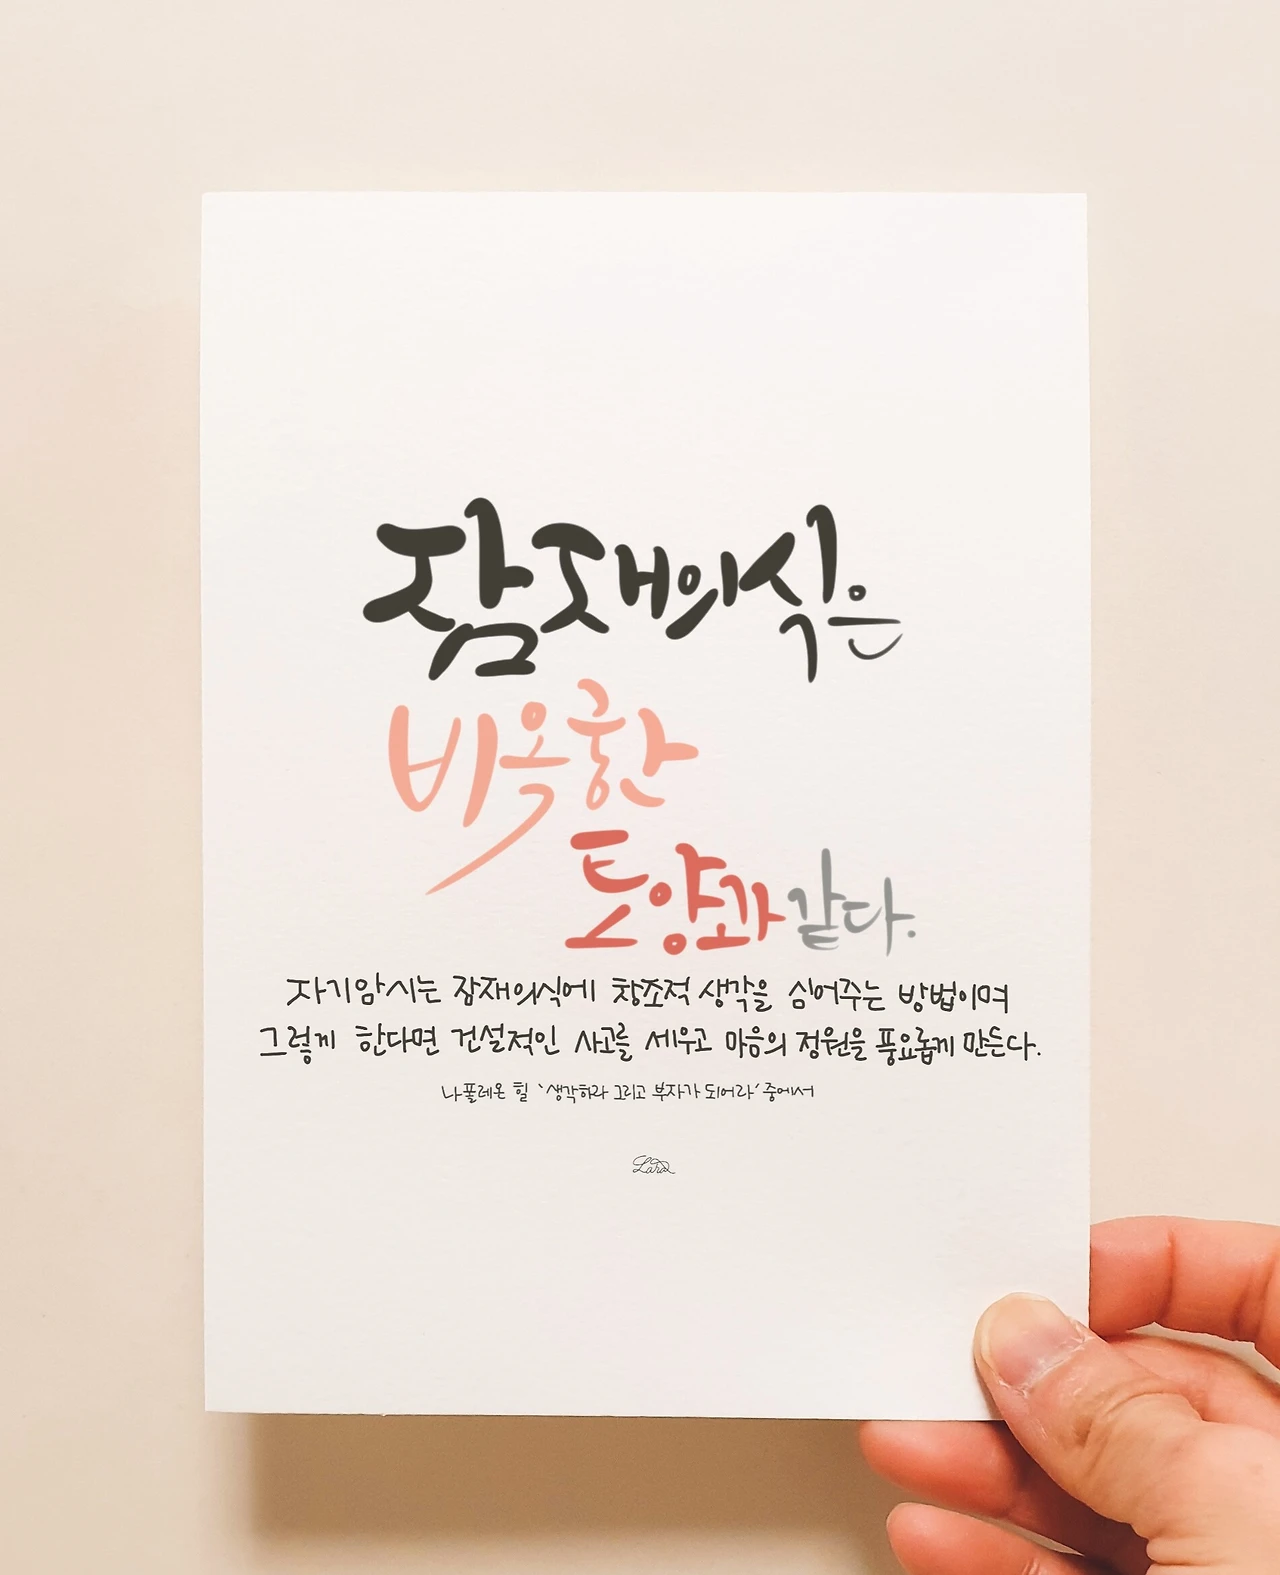 잠재의식은
비옥한
토양과 같다.
자기암시는 잠재의식에 창조적 생각을 심어주는 방법이며
그렇게 한다면 건설적인 사고를 세우고 마음의 정원을 풍요롭게 만든다.
나폴레온 힐 '생각하라 그리고 부자가 되어라' 중에서
Lara